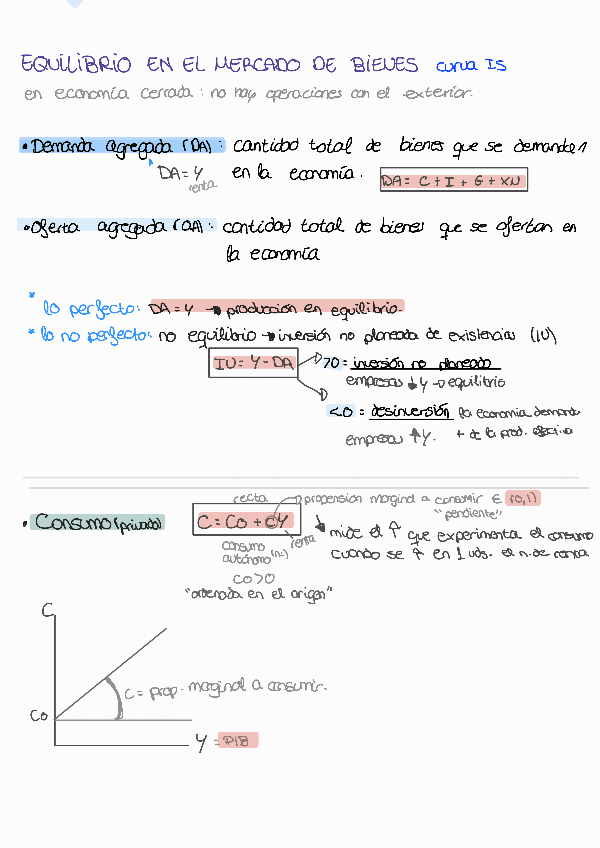 EQUILIBRIO EN EL MERCADO DE BIENES curva IS
en economía cerrada: no hay operaciones con el exterior.
• Demanda agregada (DA): cantidad total de bienes que se demandan
DA = Y en la economía. DA = C + I + G + XN
renta
• Oferta agregada (OA): cantidad total de bienes que se ofertan en
la economía
* lo perfecto: DA = Y → producción en equilibrio.
* lo no perfecto: no equilibrio → inversión no planeada de existencias (IU)
IU = Y - DA >0 = inversión no planeada
empresas ↓ Y → equilibrio
<0 = desinversión la economía demanda
empresas ↑ Y. + de la prod. efectiva
recta → propensión marginal a consumir ∈ (0,1)
"pendiente"
• Consumo (privado) C = Co + cY
renta
↓ mide el ↑ que experimenta el consumo
consumo
autónomo
cuando se ↑ en 1 uds. el n. de renta
Co > 0
"ordenada en el origen"
C
c = prop. marginal a consumir.
Co
Y = PIB